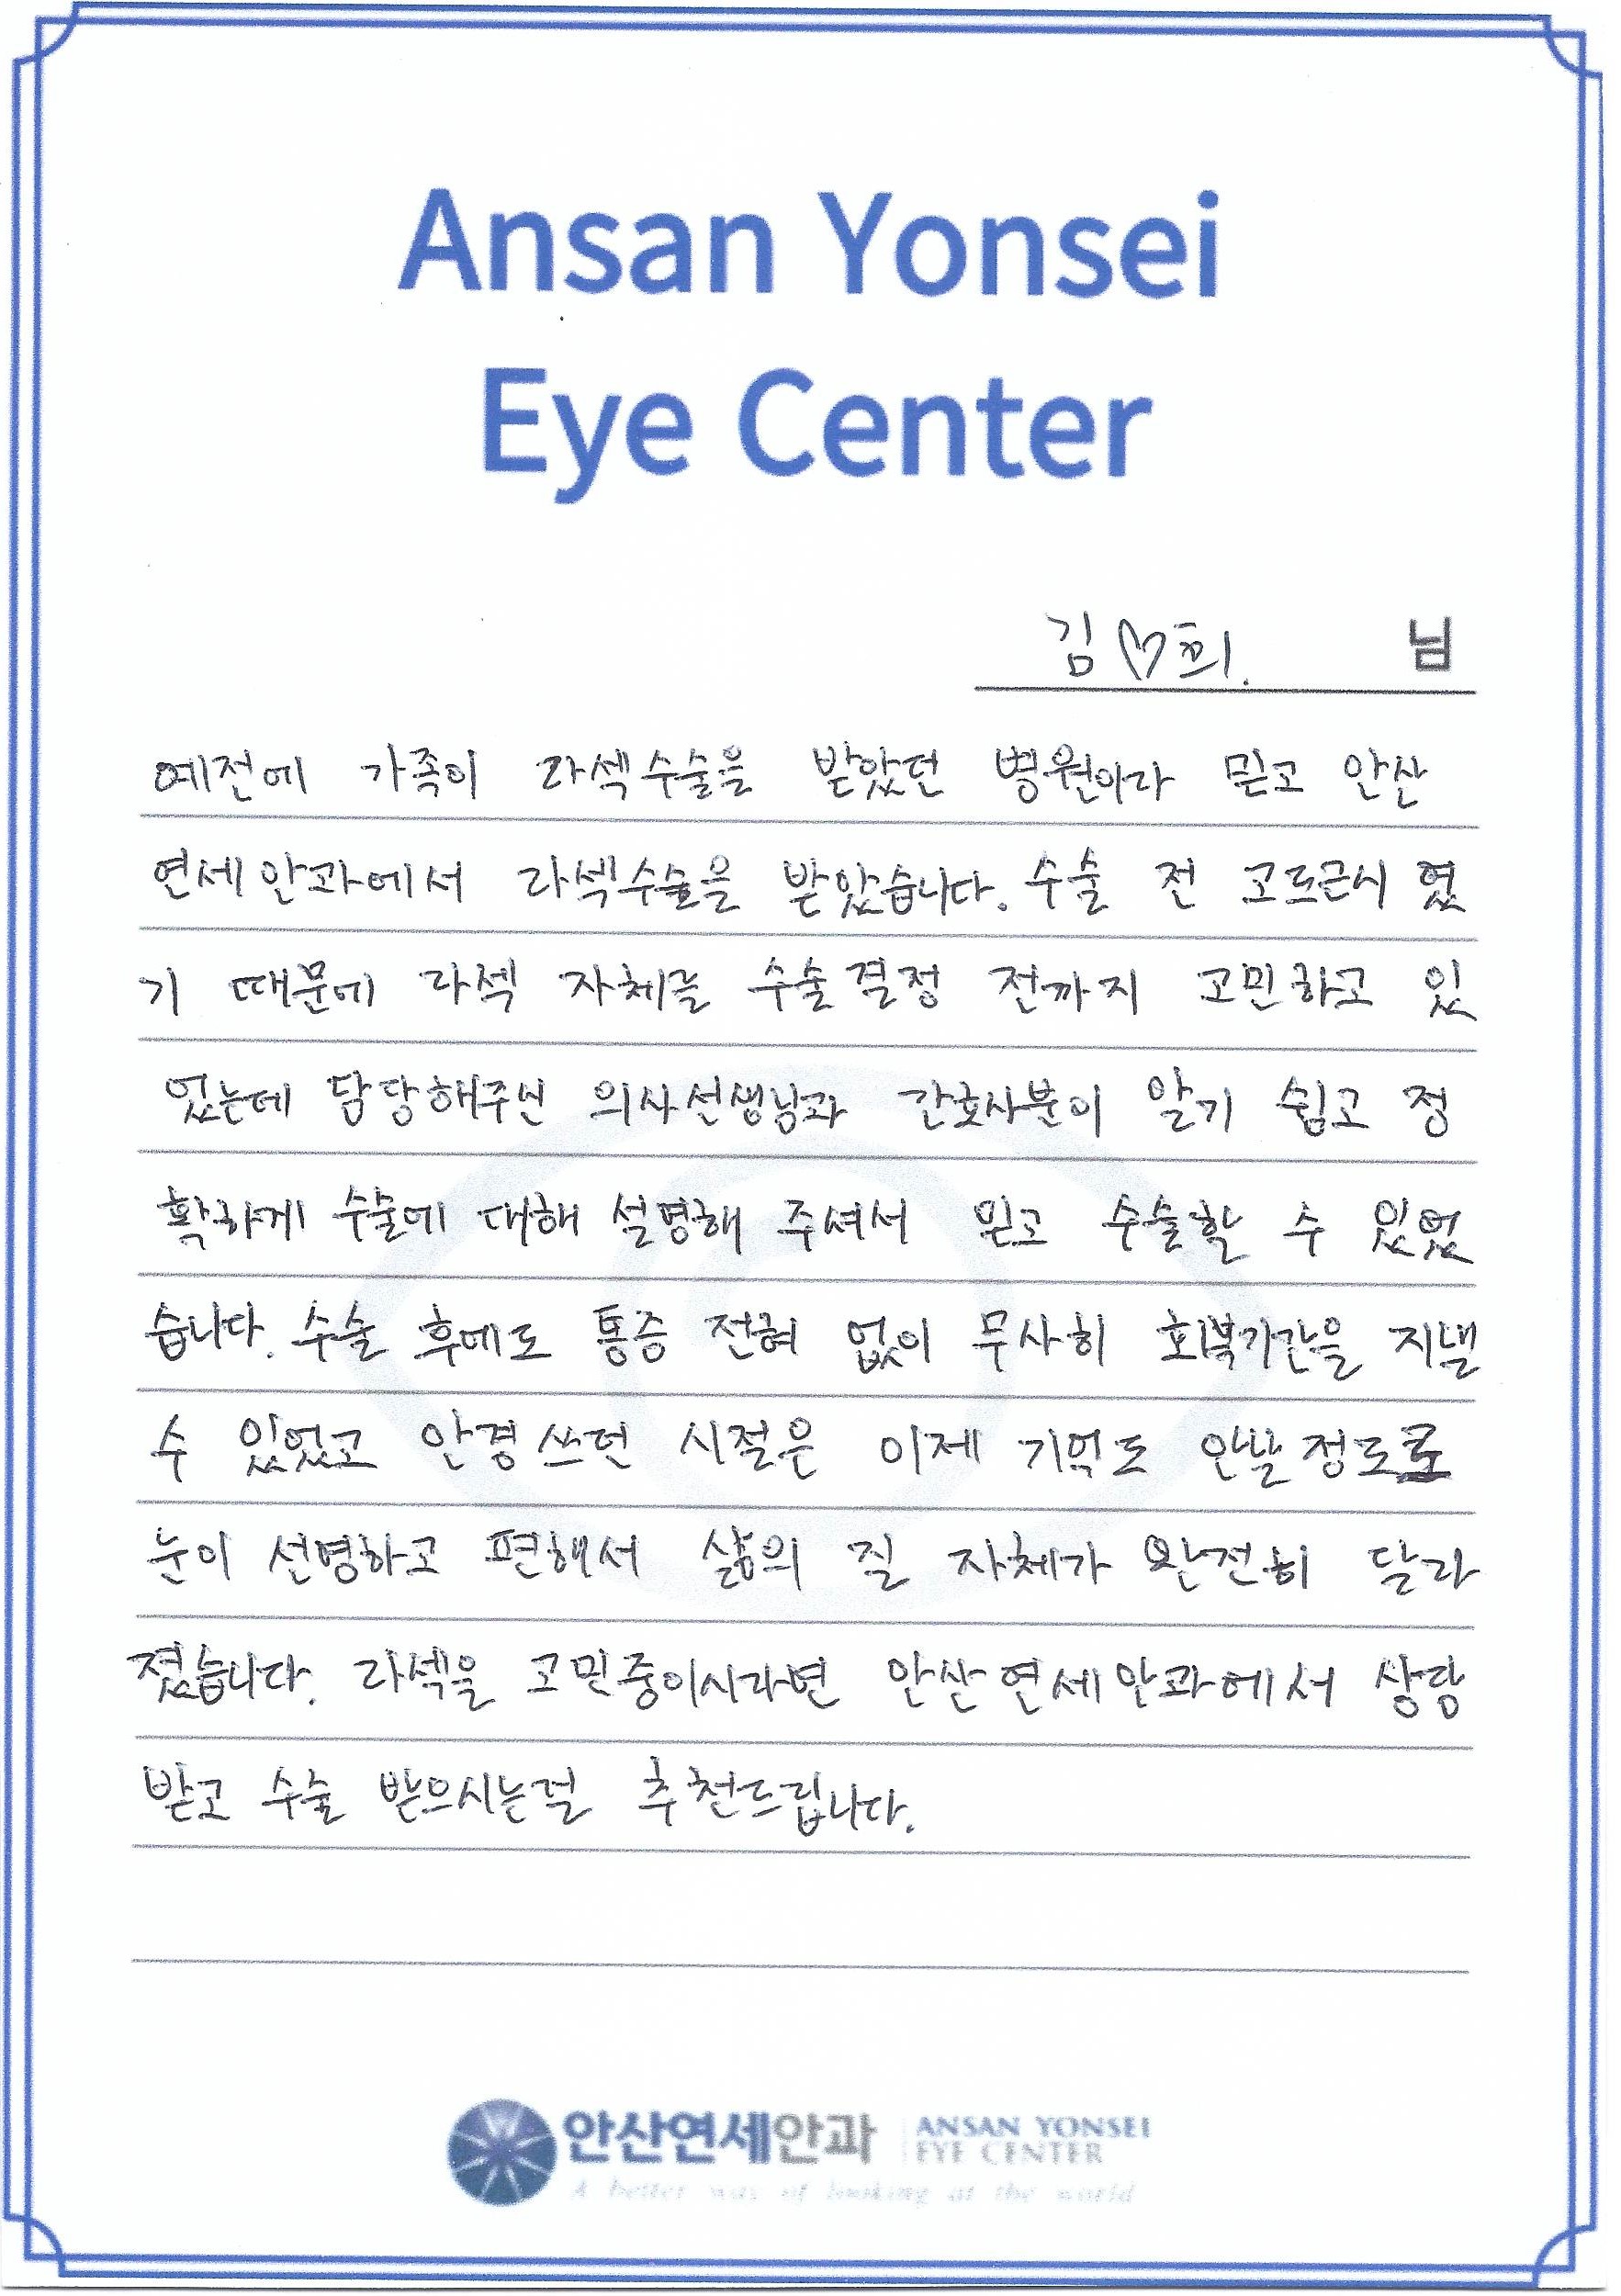 Ansan Yonsei
Eye Center
김♡희. 님
예전에 가족이 라섹수술을 받았던 병원이라 믿고 안산
연세안과에서 라섹수술을 받았습니다. 수술 전 고도근시 였
기 때문에 라섹 자체를 수술결정 전까지 고민하고 있
었는데 담당해주신 의사선생님과 간호사분이 알기 쉽고 정
확하게 수술에 대해 설명해 주셔서 믿고 수술할 수 있었
습니다. 수술 후에도 통증 전혀 없이 무사히 회복기간을 지낼
수 있었고 안경 쓰던 시절은 이제 기억도 안날 정도로
눈이 선명하고 편해서 삶의 질 자체가 완전히 달라
졌습니다. 라섹을 고민중이시라면 안산연세안과에서 상담
받고 수술 받으시는걸 추천드립니다.
안산연세안과 ANSAN YONSEI
EYE CENTER
A better way of looking at the world